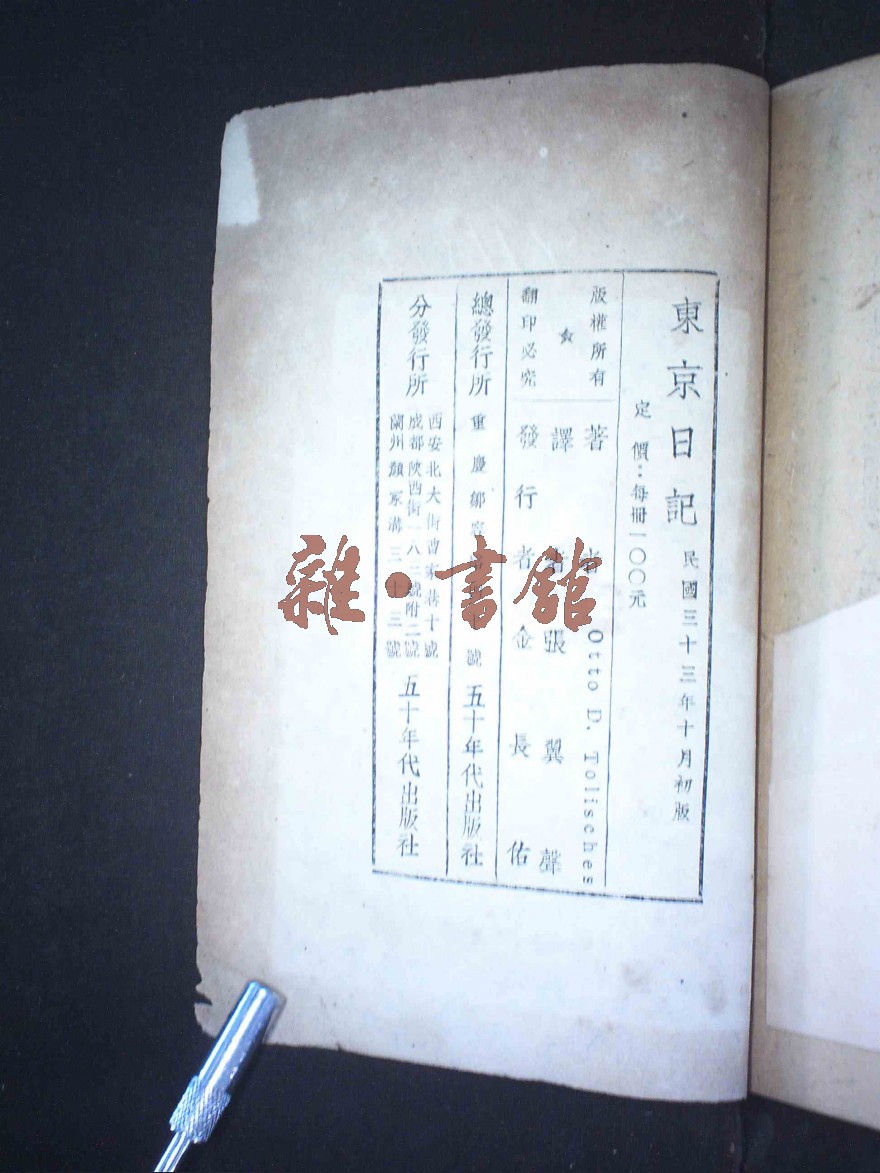 東京日記 民國三十三年十月初版
定價：每冊一〇〇元
版權所有
★
翻印必究
著者 Otto D. Tolisches
譯者 張翼聲
發行者 金長佑
總發行所 重慶鄒容 號 五十年代出版社
分發行所
西安北大街曹家巷十號
成都陝西街一八三號附二號
蘭州顏家溝三十三號
五十年代出版社
雜·書館